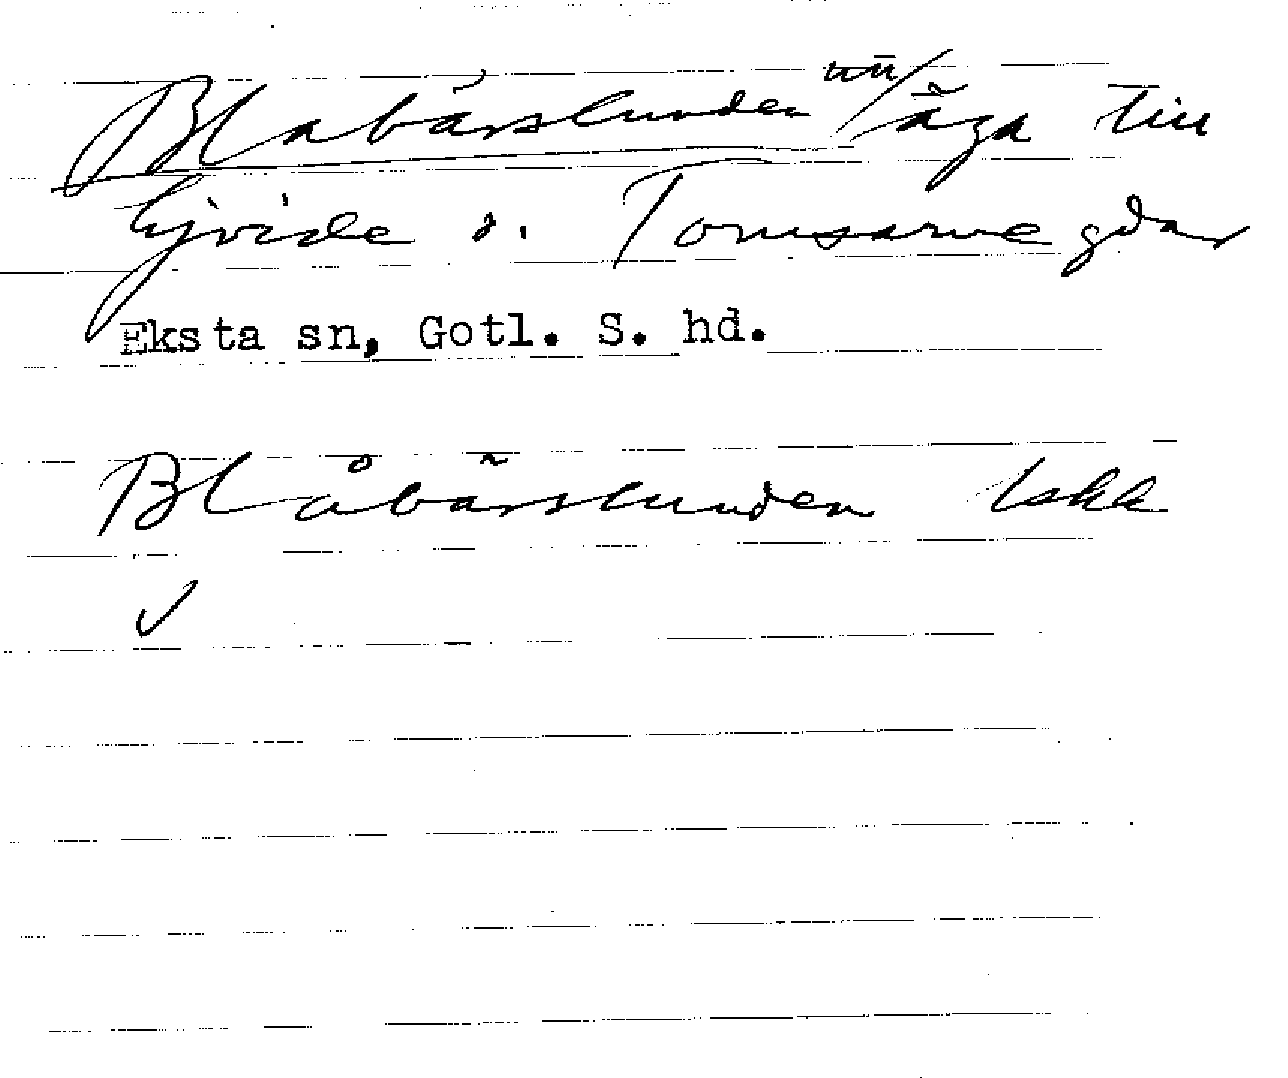 Blabärslunden un/äga till
Ajvide o. Tomsarve gdar
Eksta sn, Gotl. S. hd.
Blåbärslunden Iskk